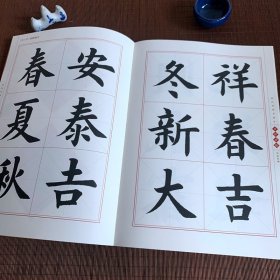 祥春吉
冬新大
安泰吉
春夏秋